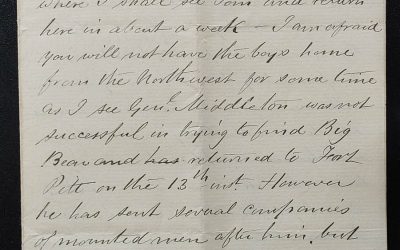 where I shall see Tom and return
here in about a week - I am afraid
you will not have the boys home
from the Northwest for some time
as I see Genl. Middleton was not
successful in trying to find Big
Bear and has returned to Fort
Pitt on the 13th inst. However
he has sent several companies
of mounted men after him, but